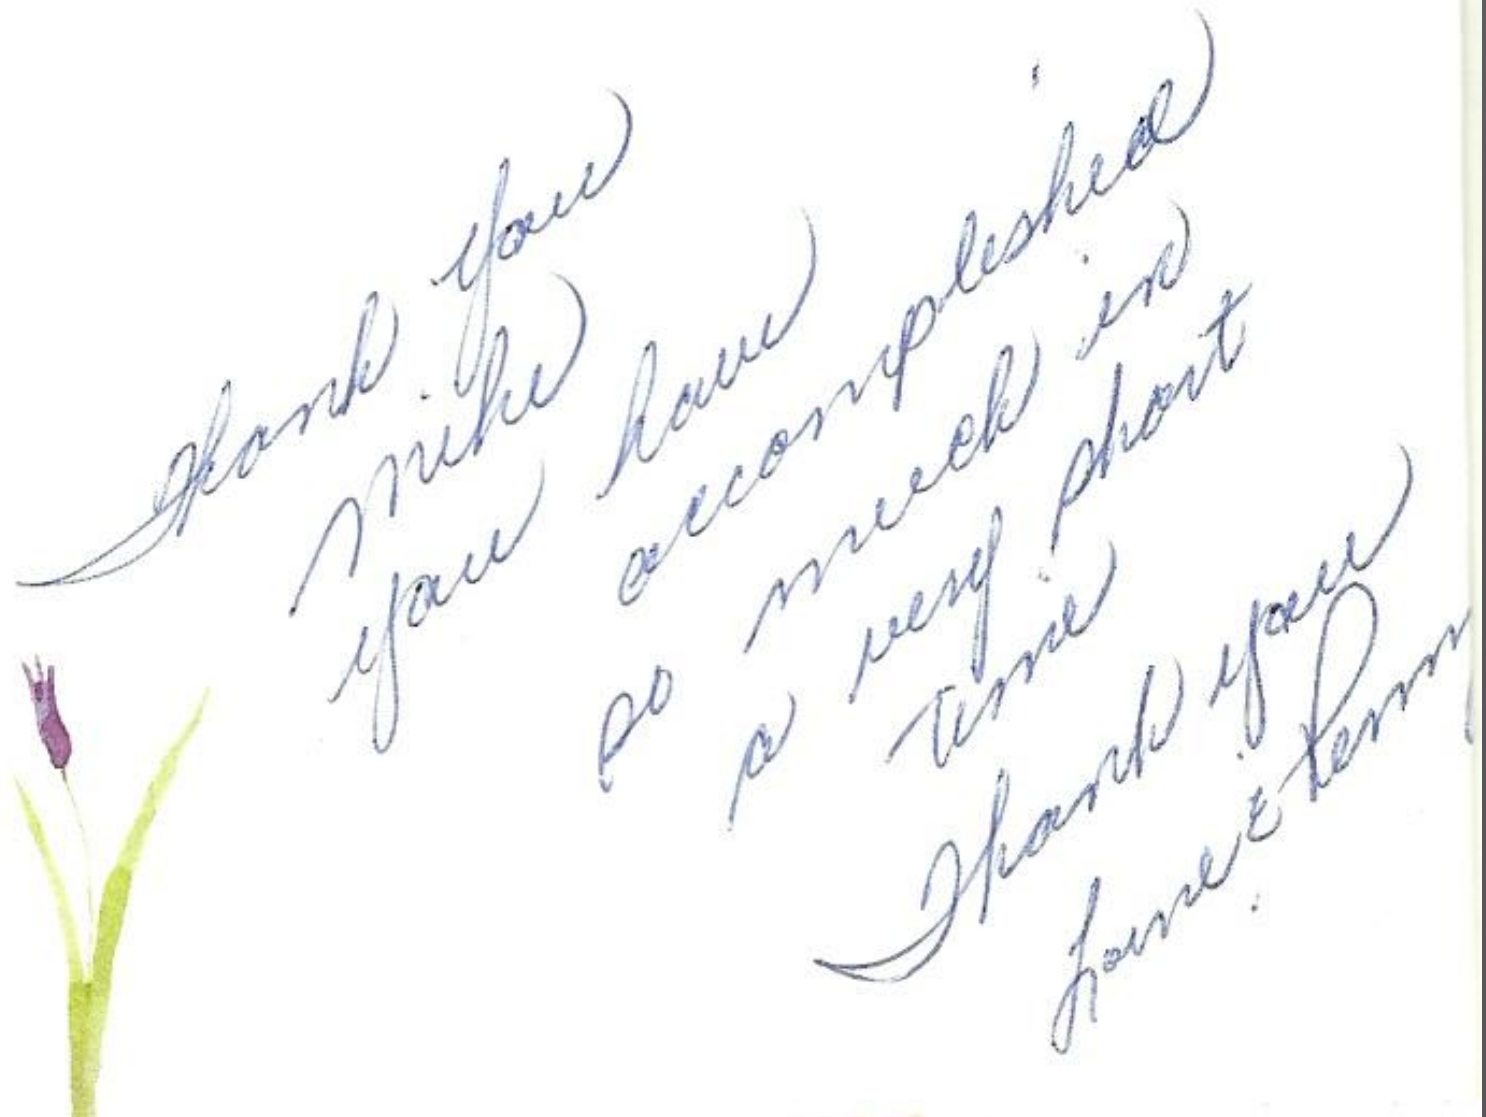 Thank you
Mike
you have
accomplished
so much in
a very short
time
Thank you
&